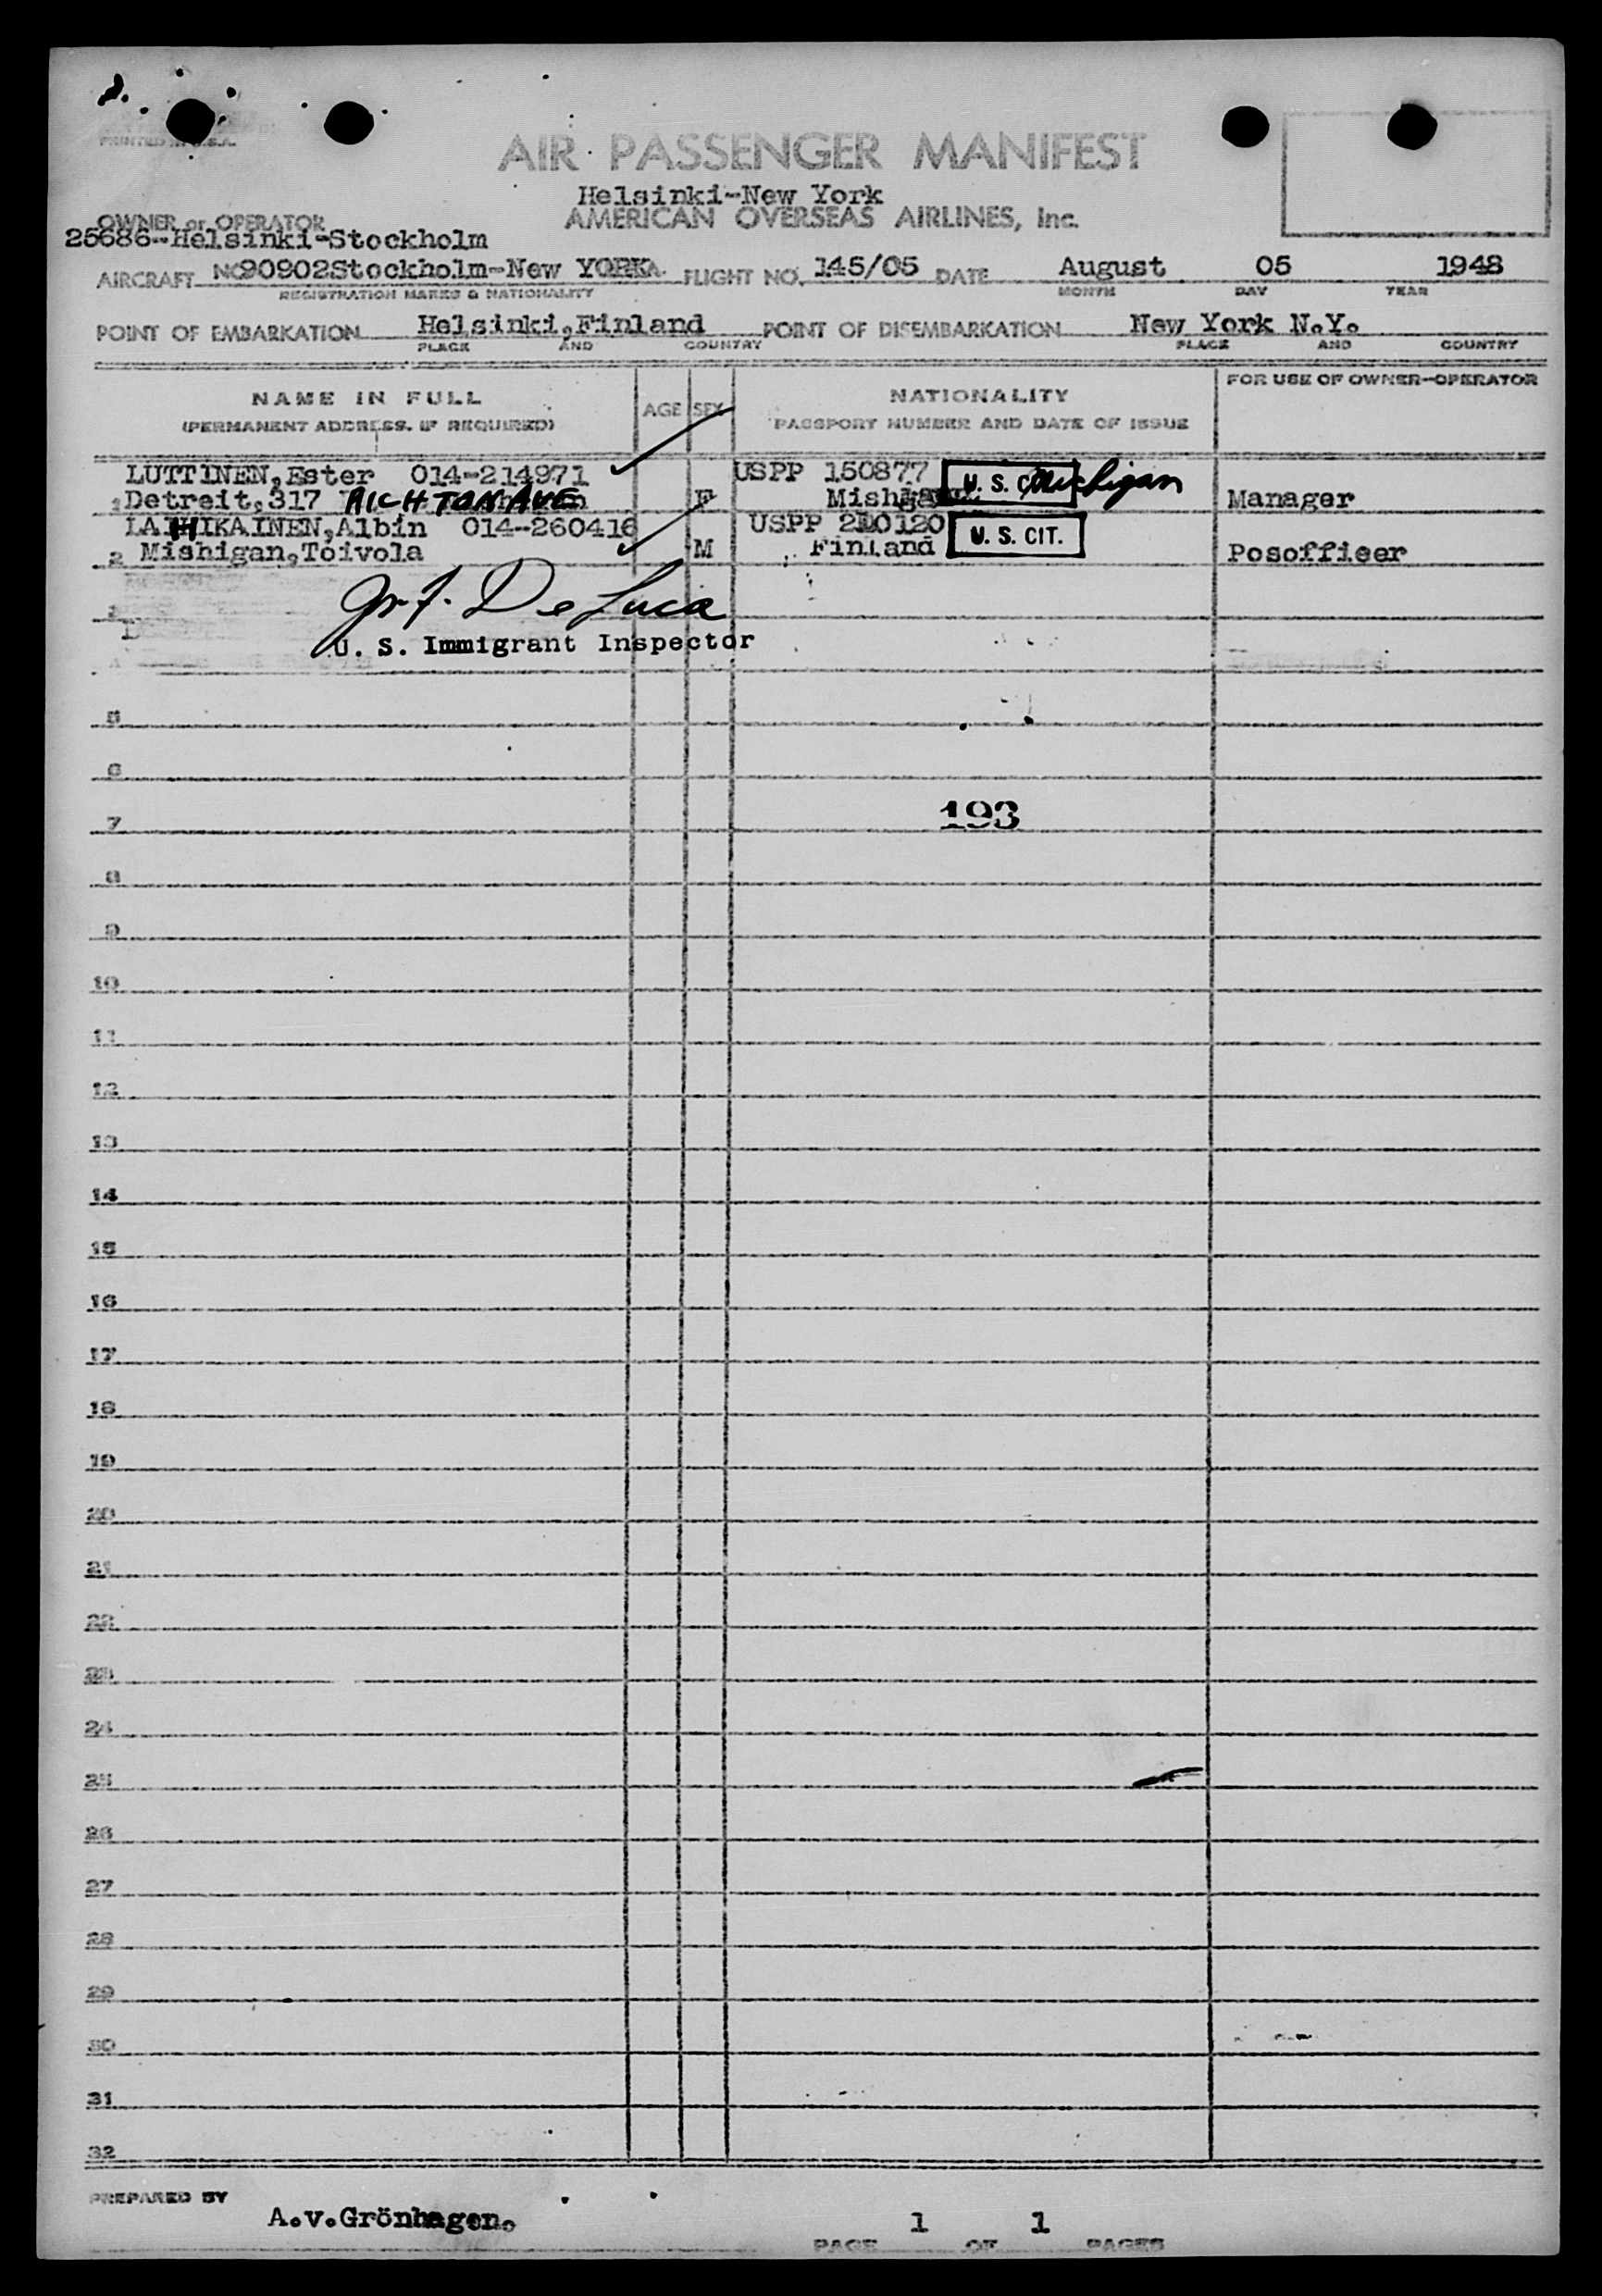 PRINTED IN U.S.A.
AIR PASSENGER MANIFEST
Helsinki-New York
OWNER or OPERATOR AMERICAN OVERSEAS AIRLINES, Inc.
25686--Helsinki-Stockholm
AIRCRAFT NC90902Stockholm-New YORK FLIGHT NO. 145/05 DATE August 05 1948
REGISTRATION MARKS & NATIONALITY MONTH DAY YEAR
POINT OF EMBARKATION Helsinki,Finland POINT OF DISEMBARKATION New York N.Y.
PLACE AND COUNTRY PLACE AND COUNTRY
NAME IN FULL AGE SEX NATIONALITY FOR USE OF OWNER-OPERATOR
(PERMANENT ADDRESS, IF REQUIRED) PASSPORT NUMBER AND DATE OF ISSUE
LUTTINEN,Ester 014-214971 USPP 150877 U. S. Michigan
1 Detreit,317 RICHTON AVE F Manager
LAHIKAINEN,Albin 014-260416 USPP 210120 U. S. CIT.
2 Mishigan,Toivola M Finland Posoffieer
3
De Luca
U. S. Immigrant Inspector
4
5
6
7 193
8
9
10
11
12
13
14
15
16
17
18
19
20
21
22
23
24
25
26
27
28
29
30
31
32
PREPARED BY
A.v.Grönhagen.
PAGE 1 OF 1 PAGES